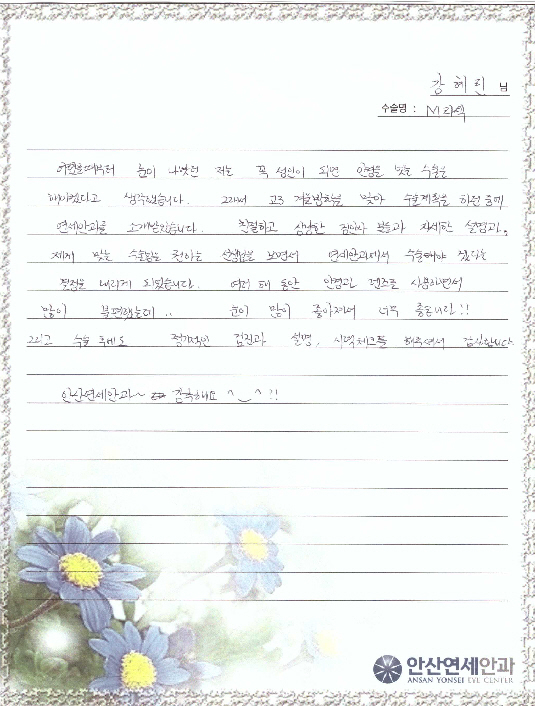 강혜린 님
수술명 : M라섹
어렸을때부터 눈이 나빴던 저는 꼭 성인이 되면 안경을 벗는 수술을
해야겠다고 생각했습니다. 그래서 고3 겨울방학을 맞아 수술계획을 하던 중에
연세안과를 소개받았습니다. 친절하고 상냥한 검안사 분들과 자세한 설명과,
제게 맞는 수술을 권하는 선생님을 보면서 연세안과에서 수술해야 겠다는
결정을 내리게 되었습니다. 여러 해 동안 안경과 렌즈를 사용하면서
많이 불편했는데.. 눈이 많이 좋아져서 너무 좋습니다!!
그리고 수술 후에도 정기적인 검진과 설명, 시력체크를 해주셔서 감사합니다
안산연세안과~ 감사해요 ^‿^ !!
안산연세안과
ANSAN YONSEI EYE CENTER